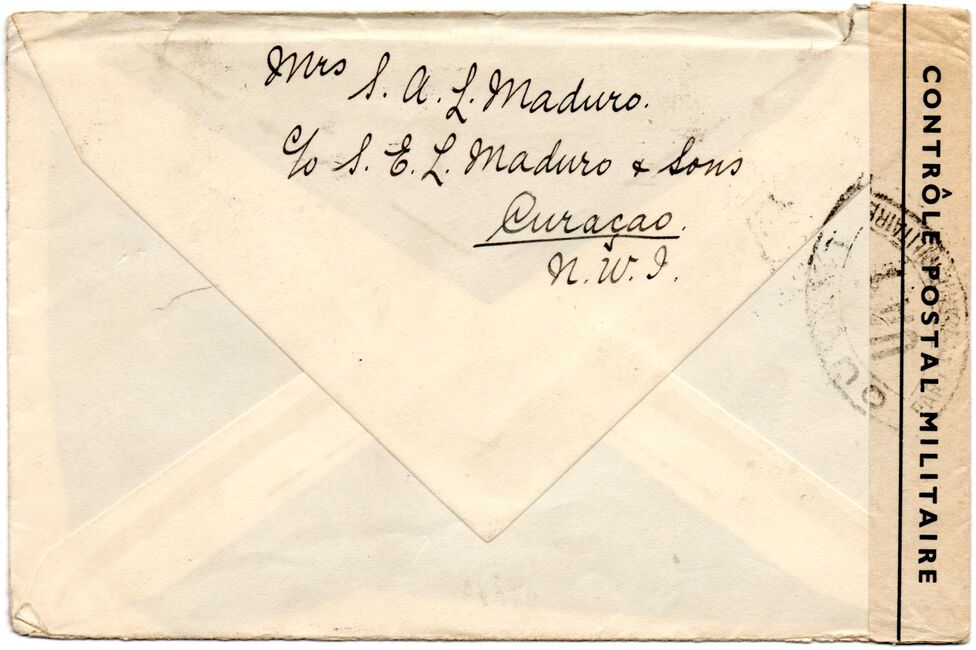 Mrs S. A. L. Maduro.
c/o S. E. L. Maduro & Sons
Curaçao.
N. W. I.
CONTRÔLE POSTAL MILITAIRE